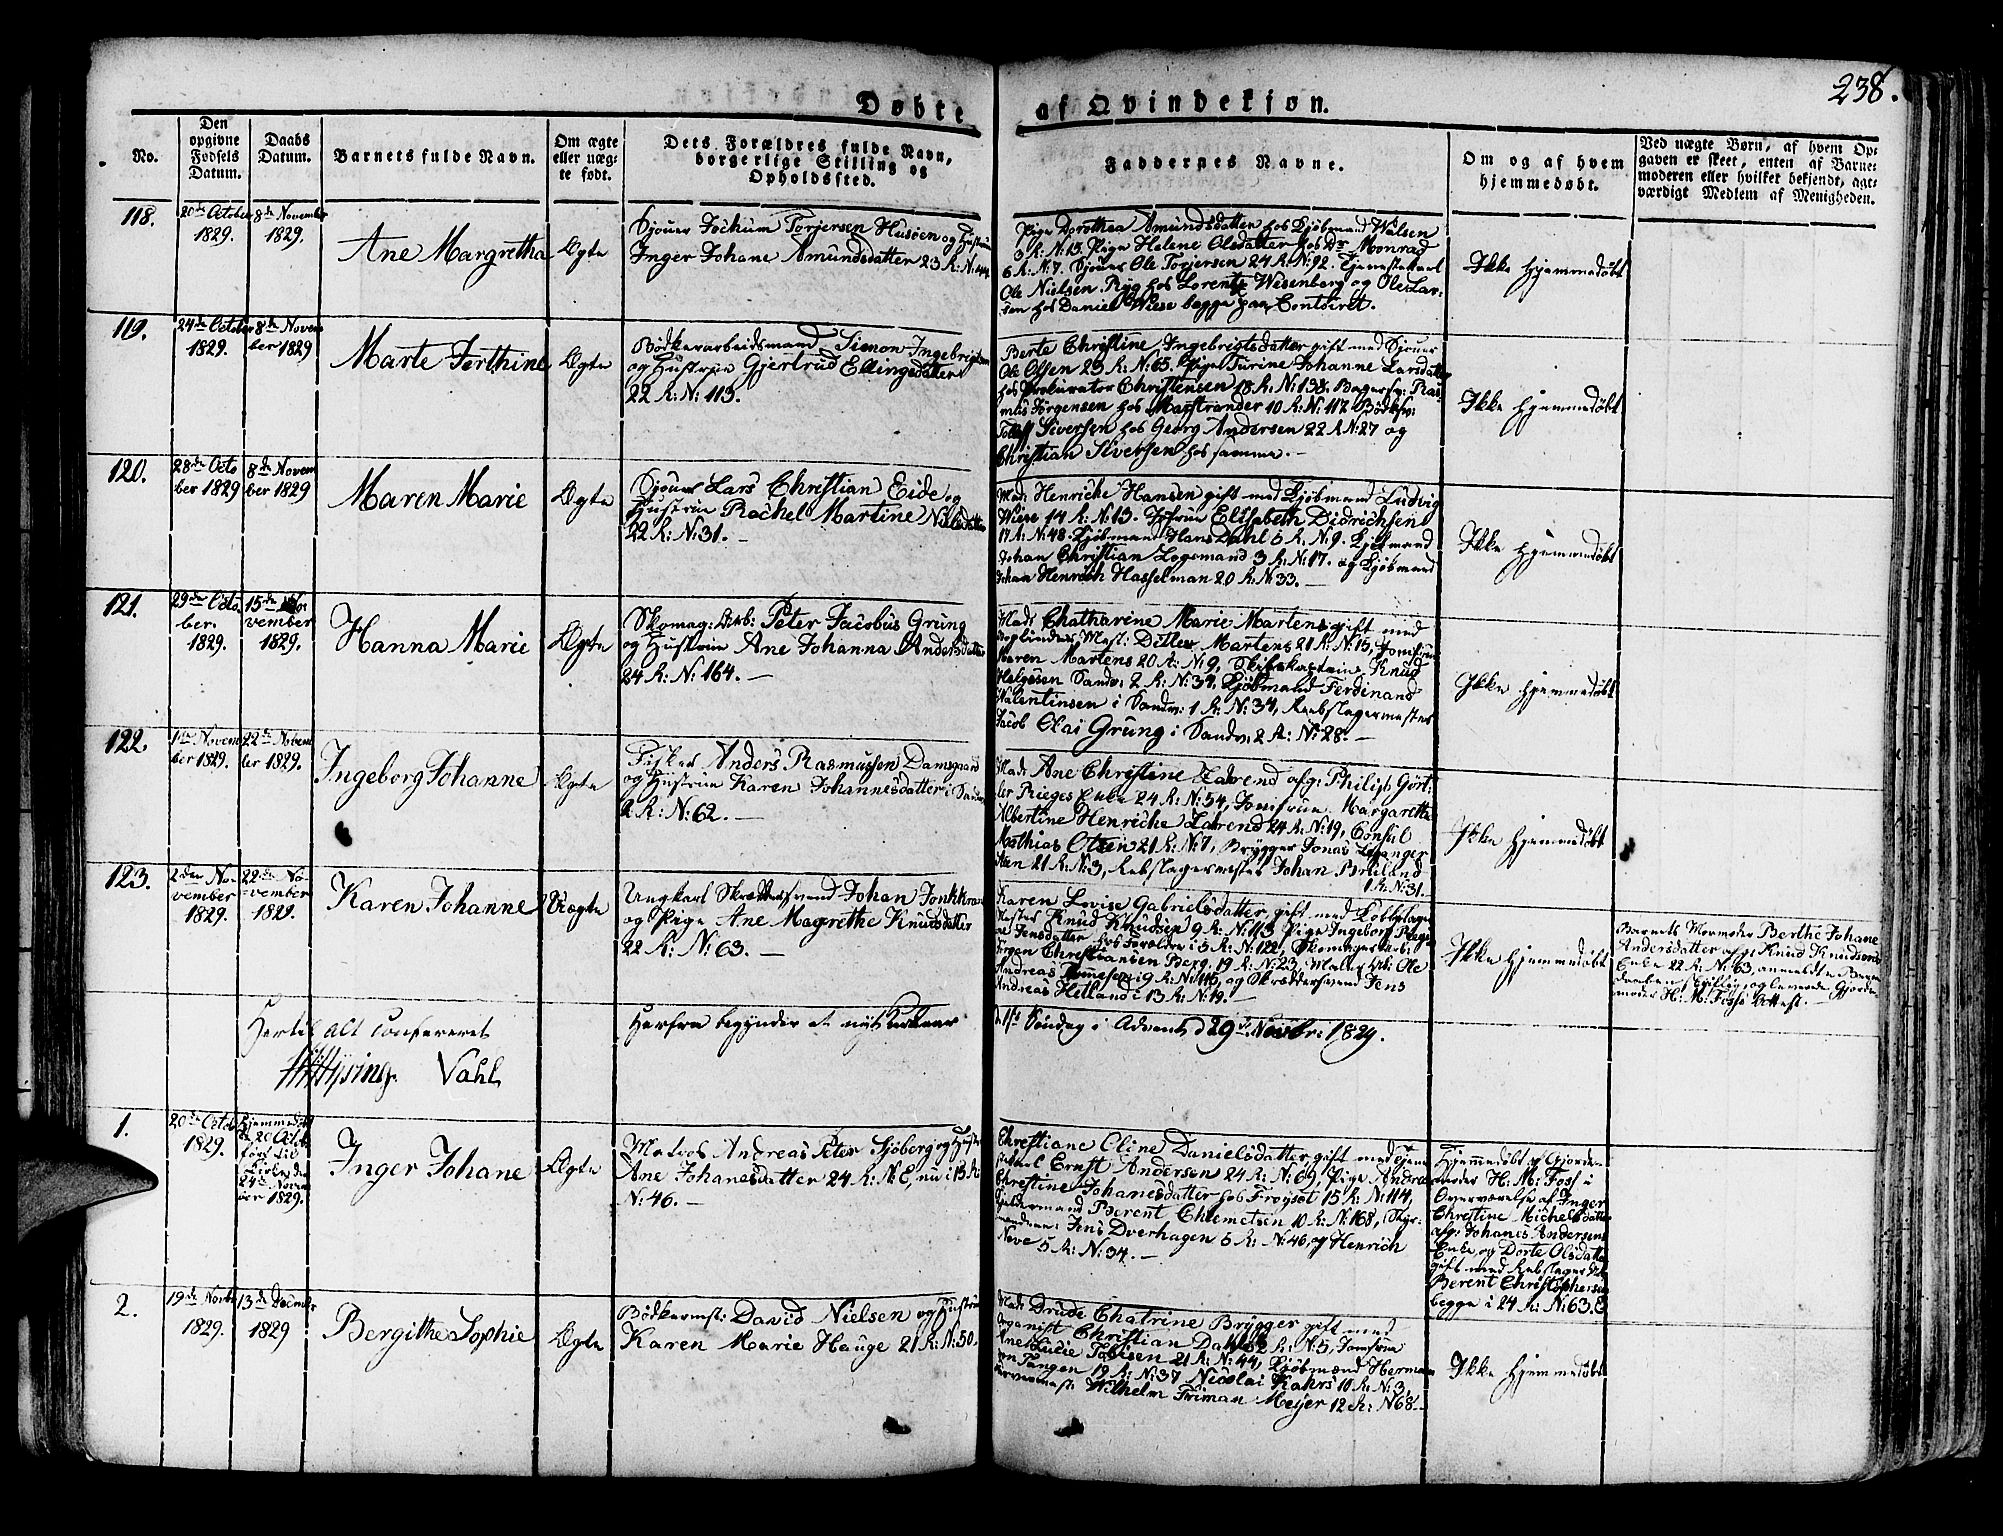 238.
Døbte af Qvindekjøn.
No.
Den opgivne Fødsels Datum.
Daabs Datum.
Barnets fulde Navn.
Om ægte eller uægte født.
Dets Forældres fulde Navn, borgerlige Stilling og Opholdssted.
Faddernes Navne.
Om og af hvem hjemmedøbt.
Ved uægte Børn, af hvem Opgaven er skeet, enten af Barnemoderen eller hvilket bekjendt, agtværdigt Medlem af Menigheden.
118.
20de October 1829.
8de November 1829.
Ane Margretha
Ægte
Sjouer Jochum Torjersen Husöen og Hustrue
Inger Johane Amundsdatter 23 R: N: 44
Pige Dorothea Amundsdatter hos Kjöbmand Wilsen
3 R: N: 15. Pige Helene Olsdatter hos Dr Monrad
6 R: N: 7. Sjouer Ole Torjersen 24 R: N: 92. Tjenestekarl
Ole Nielsen Ryg hos Lorentz Wesenberg og Ole Lar-
sen hos Daniel Wiese begge paa Contoiret.
Ikke hjemmedøbt
119.
24de October 1829.
8de November 1829
Marte Serthine
Ægte
Bödkerarbeidsmand Simon Ingebrigtsen
og Hustrue Gjertrud Ellingsdatter
22 R: N: 113.
Berte Christine Ingebrigtsdatter gift med Sjouer
Ole Olsen 23 R: N: 65. Pige Turine Johanne Larsdatter
hos Procurator Christensen 18 R: N: 138. Bagersv: Ras-
mus Jörgensen hos Marstrander 10 R: N: 112. Bödksv:
Tollef Siversen hos Georg Andersen 22 R N: 27 og
Christian Siversen hos samme.
Ikke hjemmedøbt
120.
28de October 1829
8de November 1829
Maren Marie
Ægte
Sjouer Lars Christian Eide og
Hustrue Rachel Martine Nilsdatter
22 R: N: 31.
Mad: Henriche Hansen gift med Kjöbmand Ludvig
Wiese 14 R: N: 13. Jfrue Elisabeth Didrichsen
17 R: N: 48. Kjöbmand Hans Dahl 5 R: N: 9. Kjöbmand
Johan Christian Logemand 3 R: N: 17. og Kjöbmand
Johan Henrich Hasselman 20 R: N: 33.
Ikke hjemmedøbt
121.
29de October. 1829.
15de November 1829.
Hanna Marie
Ægte
Skomag: Arb: Peter Jacobus Grung
og Hustrue Ane Johanna Andersdatter
24 R: N: 164.
Mad: Chatharine Marie Martens gift med
Mest: Ditlev Martens 21 R: N: 15, Jomfrue
Maren Martens 20 R: N: 9, Skibskaptain Knud
Helgesen Sandv: 2 R: N: 34, Kjöbmand Ferdinand
Valentinsen i Sandv: 1 R: N: 34, Rebslagermester
Jacob Olai Grung i Sandv: 2 R: N: 28.
Ikke hjemmedøbt
122.
November 1829.
22de November 1829.
Ingeborg Johanne
Ægte
Fisker Anders Rasmussen Damsgaard
og Hustrue Karen Johannesdatter i Sandv:
2 R: N: 62.
Mad: Ane Christine Zarend afg: Philip Gört-
ler Rieges Enke 24 R: N: 54, Jomfrue Margaretha
Albertine Henriche Zarend 24 R: N: 19, Consul
Mathias Olsen 21 R: N: 7, Brygger Jonas Leganger
Steen 21 R: N: 3, Rebslagermester Johan
1 R: N: 31.
Ikke hjemmedøbt
123.
2den November 1829.
22de November 1829.
Karen Johanne
Uægte
Ungkarl Skræddersvend Johan
og Pige Ane Magrethe Knudsdatter
22 R: N: 63.
Karen Lovise Gabrielsdatter gift med
Mester Knud Knudsen 9 R: N: 113, Pige Ingeborg
Jensdatter hos Forældre i 5 R: N: 122, Skomagerarb:
Jörgen Christiansen Berg, 19 R: N: 23, Maler Ole
Andreas 9 R: N: 115, og Skræddersvend Jens
Andreas Hetland i 13 R: N: 19.
Ikke hjemmedøbt
Barnets Mormoder Berthe Johane
Andersdatter afg: Knud Knudsens
Enke 22 R: N: 63, anmeldte Barne-
daaben skriftlig, og leverede Gjorde-
moder H: M: Foss's Attest.
Hertil alt confereret
Hysing Vahl
Herfra begynder et nyt Kirkeaar
1ste Søndag i Advent d 29de Novbr: 1829.
1.
20de October 1829.
Hjemmedöbt den 20 Octob: ført til Kirken den 24de November 1829.
Inger Johane
Ægte
Matros Andreas Peter Sjöberg og Hustrue
Ane Johanesdatter 24 R: N: E, nu i 13 R:
N: 46.
Christiane Oline Danielsdatter gift med Tjene-
stekarl Ernst Andersen 24 R: N: 69, Pige Andrea
Christine Johanesdatter hos Froyset 15 R: N: 114,
Berent Clemetsen 10 R: N: 168, Styr-
mændene: Jens Dverhagen 5 R: N: 46, og Henrich
Neve 5 R: N: 34.
Hjemmedöbt af Gjorde-
moder H: M: Foss i
Overværelse af Inger
Christine Michelsdatter
afg: Johanes Andersens
Enke, og Dorte Olsdatter
gift med Rebslager
Berent Christophersen
begge i 24 R: N: 63.E
2.
19de Novbr 1829.
13de December 1829
Bergithe Sophie
Ægte
Bödkermest: David Nielsen og Hustrue
Karen Marie Hauge 21 R: N: 50.
Mad: Drude Chatrine Brygger gift med
Organist Christian Dahl 2 R: N: 5, Jomfrue
Ane Lucie Tobisen 21 R: N: 44, Kjöbmænd Herman
von Tangen 19 R: N: 37 Nicolai Kahrs 10 R: N: 3,
Garvermest: Wilhelm Friman Meyer 12 R: N 68.
Ikke hjemmedøbt